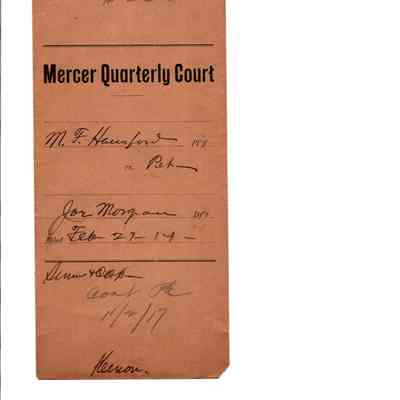 Mercer Quarterly Court
M. F. Hansford
vs Pet
Jas Morgan
Feb 27-14-
Cont
11/2/17
Keenon.